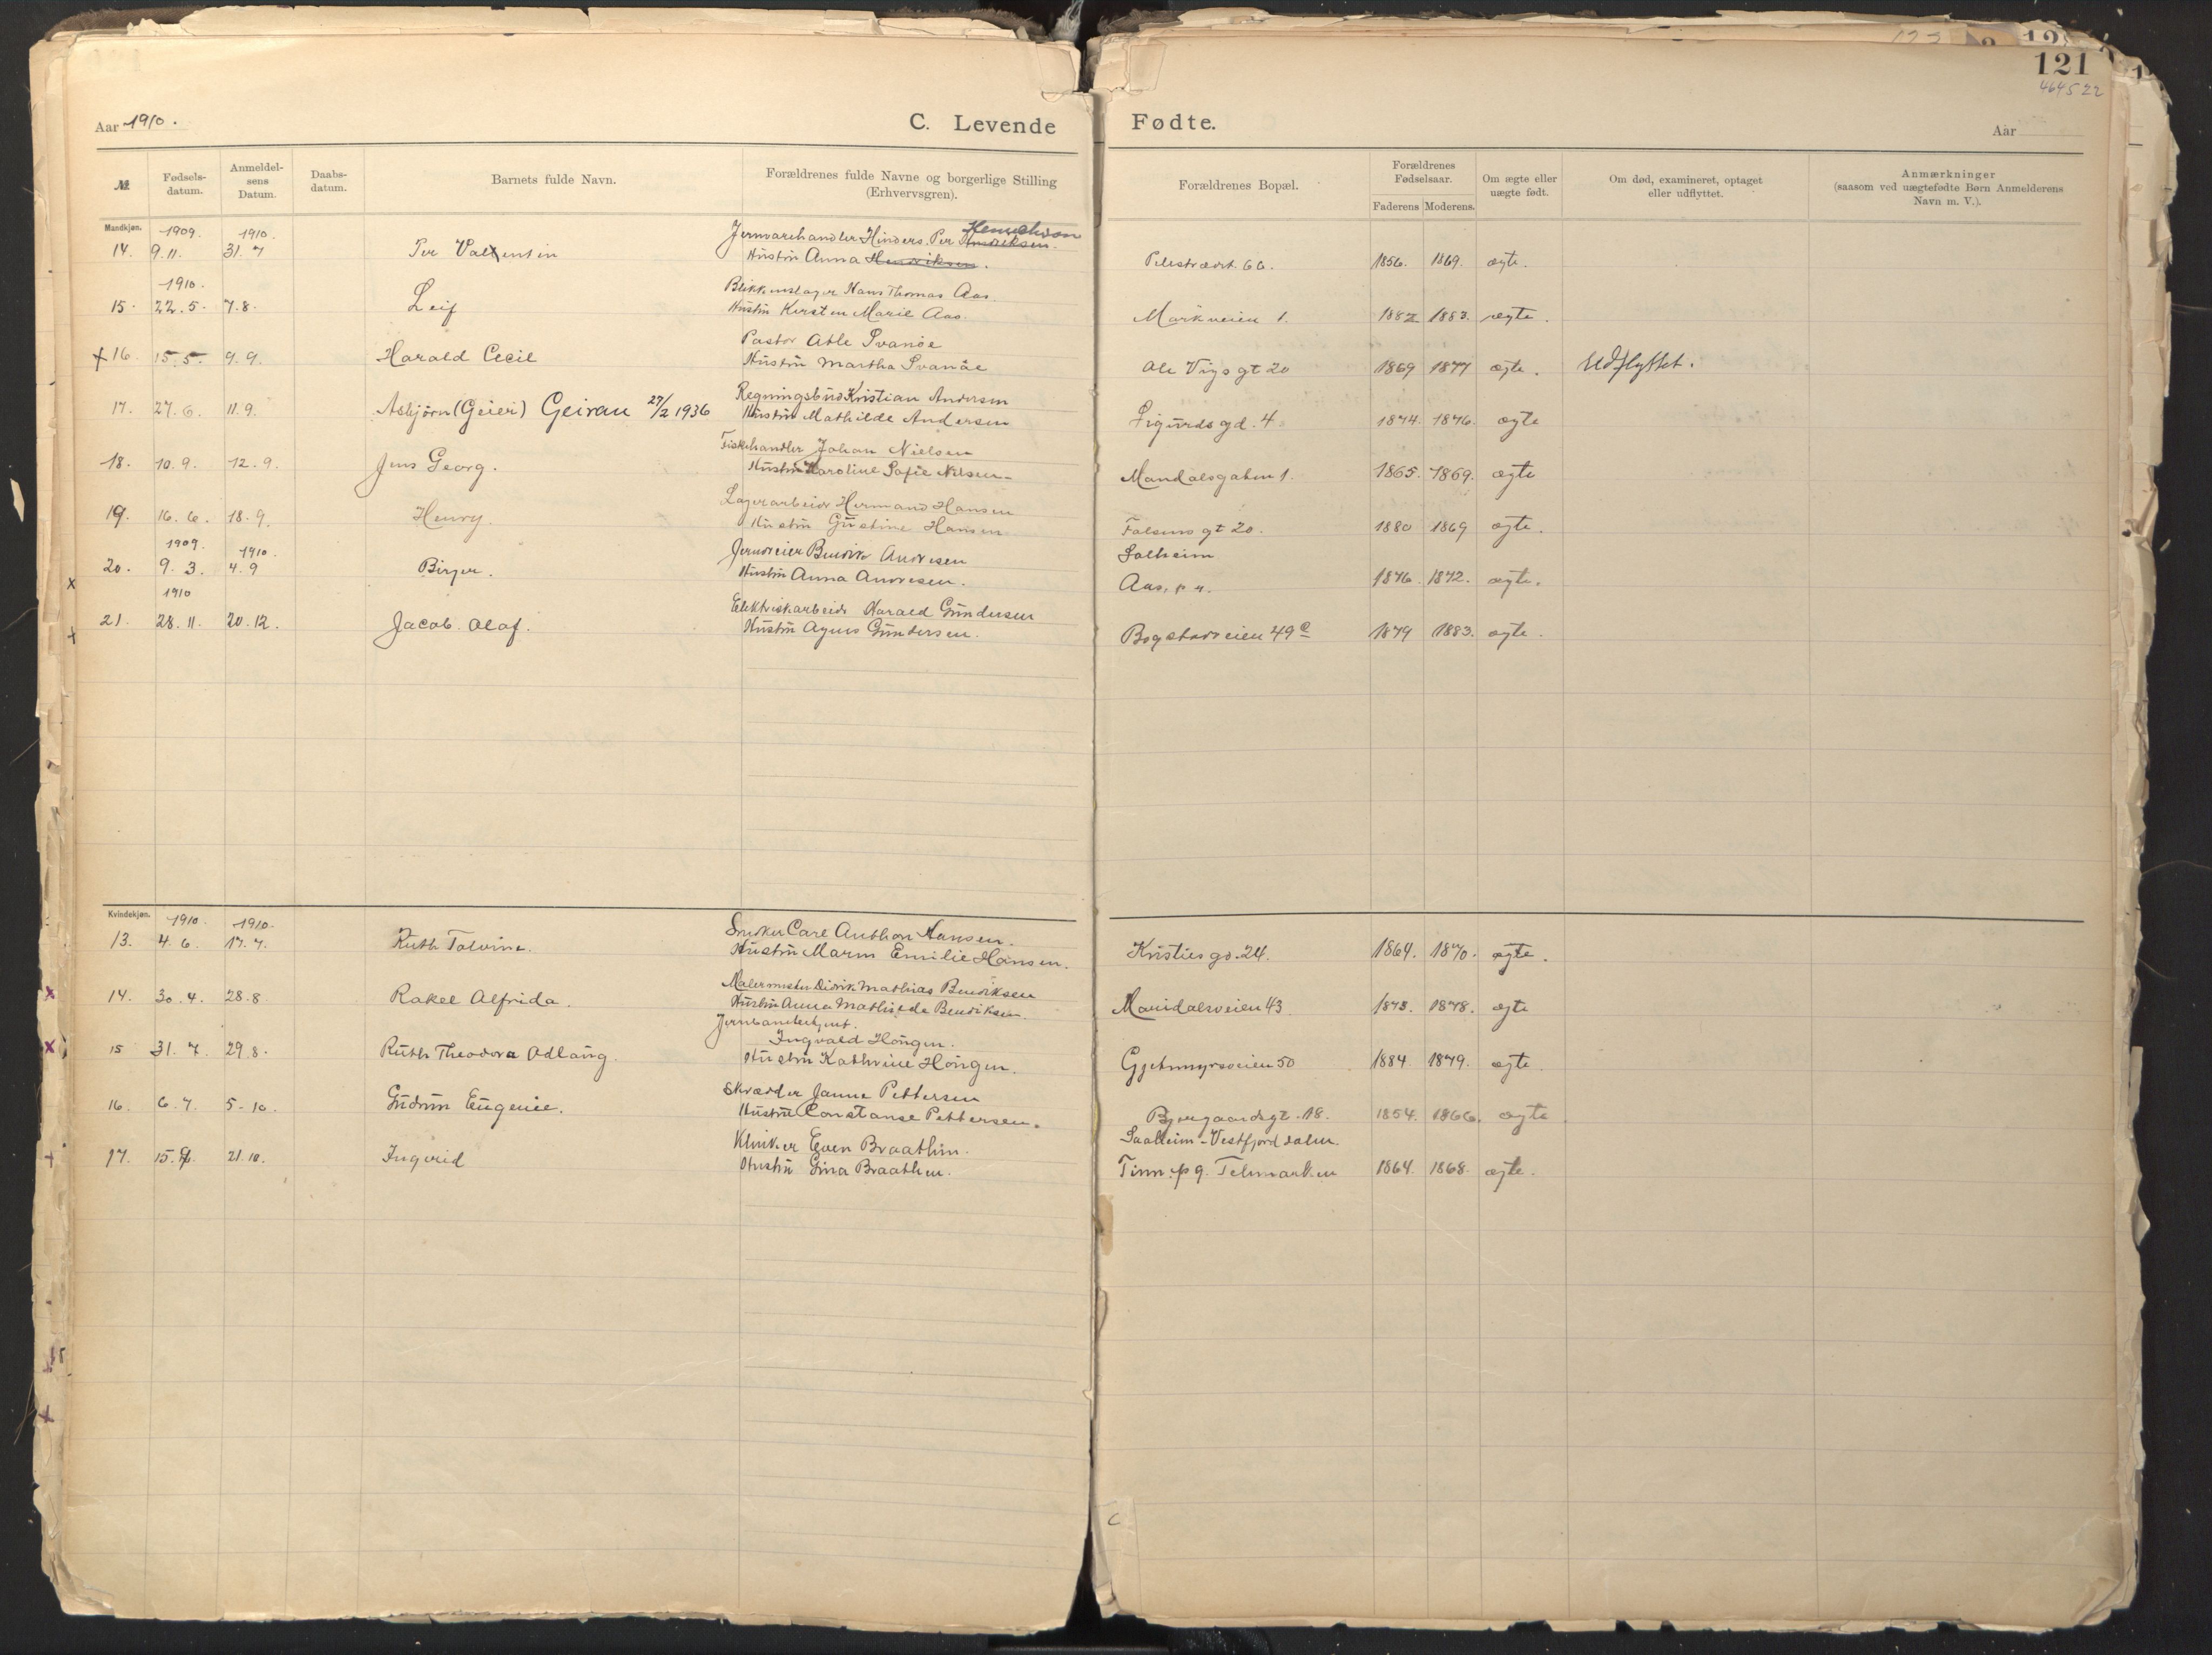 121
464522
Aar 1910.
C. Levende Fødte.
Aar
№
Fødsels-datum.
Anmeldel-sens Datum.
Daabs-datum.
Barnets fulde Navn.
Forældrenes fulde Navne og borgerlige Stilling (Erhvervsgren).
Forældrenes Bopæl.
Forældrenes Fødselsaar.
Faderens Moderens.
Om ægte eller uægte født.
Om død, examineret, optaget eller udflyttet.
Anmærkninger (saasom ved uægtefødte Børn Anmelderens Navn m. V.).
Mandkjøn.
1909. 1910. Jernvarehandler Hinders. Per
14. 9.11. 31.7 Per Valentin Hustru Anna Henriksen. Pilestrædet 66. 1856. 1869. ægte.
1910. Blikkenslager Hans Thomas Aas.
15. 22.5. 7.8. Leif Hustru Kirsten Marie Aas. Markveien 1. 1882 1883. ægte.
Pastor Atle Svanøe
+ 16. 15.5. 9.9. Harald Cecil Hustru Martha Svanøe Ole Vigs gt 20 1869 1877 ægte. Udflyttet.
Regningsbud Kristian Andersen
17. 27.6. 11.9. Asbjørn (Geier) Geirau 27/2 1936 Hustru Mathilde Andersen Sigurds gd. 4 1874. 1876. ægte
Fiskehandler Johan Nielsen
18. 10.9. 12.9. Jens Georg. Hustru Karoline Sofie Nilsen Mandalsgaten 1. 1865. 1869. ægte
Lagerarbeider Hermand Hansen
19. 16.6. 18.9. Henry. Hustru Gustine Hansen Falsens gt 20. 1880 1869 ægte.
1909. 1910. Jerndreier Bendik Andresen Solheim
20. 9.3. 4.9 Birger. Hustru Anna Andresen. Aas, p. 1876. 1872. ægte.
x
1910 Elektriskarbeider Harald Gundersen
21. 28.11. 20.12. Jacob. Olaf. Hustru Agnes Gundersen. Bogstadveien 49 1879 1883. ægte.
+
Kvindekjøn.
1910. 1910. Snedker Carl Anthon Hansen.
13. 4.6. 17.7. Ruth Tolvine. Hustru Maren Emilie Hansen. Kristies gd. 24. 1864. 1870. ægte.
Malermester Didrik Mathias Bendiksen
x 14. 30.4. 28.8. Rakel Alfrida. Hustru Anna Mathilde Bendiksen. Maridalsveien 43 1873. 1878. ægte
Jernbanebetjent.
Ingvald Høngen.
x 15 31.7. 29.8. Ruth Theodora Adlaug. Hustru Kathrine Høngen. Gjetemyrsveien 50 1884. 1879. ægte.
Skrædder Janne Pettersen
16. 6.7. 5-10. Gudrun Eugenie. Hustru Constanse Pettersen. Bjergaardsgt. 18. 1854. 1866. ægte
Klinker Even Braathen. Saaheim-Vestfjorddalen.
+ 17. 15. 21.10. Ingerid Hustru Gina Braathen. Tinn. pg. Telemarken 1864. 1868. ægte.